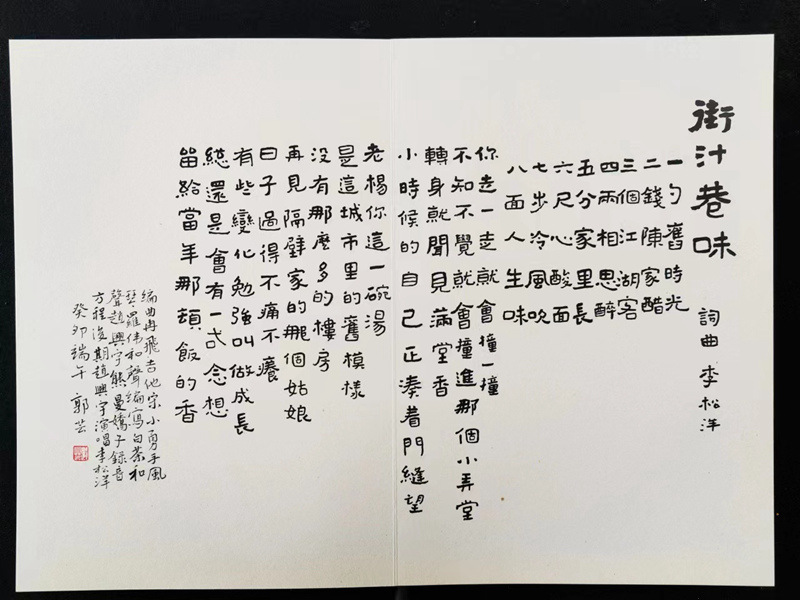 街汁巷味
詞曲 李松洋
一勺舊時光
二錢陳家醋
三個江湖客
四兩相思醉
五分家里長
六尺心酸面
七步冷風吹
八面人生味
你走一走就會撞一撞
不知不覺就會撞進那個小弄堂
轉身就聞見滿堂香
小時候的自己正湊着門縫望
老楊你這一碗湯
是這城市里的舊模樣
没有那麼多的樓房
再見隔壁家的那個姑娘
日子過得不痛不癢
有些變化勉強叫做成長
緫還是會有一式念想
畱給當年那頓飯的香
编曲冉飛吉他宗小勇手風
琴羅伟和聲編寫白茶和
聲趙興宇熊曼嬌子録音
方程後期趙興宇演唱李松洋
癸卯端午 郭芸